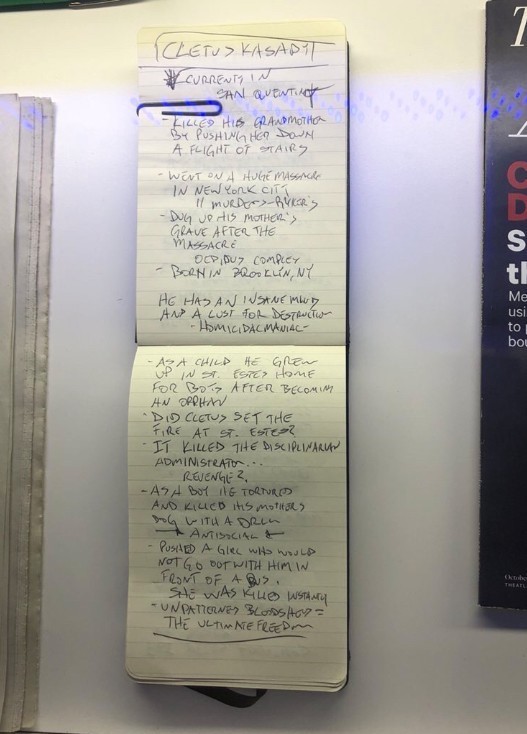 CLETUS KASADY
* CURRENTS IN
SAN QUENTIN *
- KILLED HIS GRANDMOTHER
BY PUSHING HER DOWN
A FLIGHT OF STAIRS
- WENT ON A HUGE MASSACRE
IN NEW YORK CITY
11 MURDERS - RIKER'S
- DUG UP HIS MOTHER'S
GRAVE AFTER THE
MASSACRE
OEDIPUS COMPLEX
- BORN IN BROOKLIN, NY
HE HAS AN INSANE MIND
AND A LUST FOR DESTRUCTION
- HOMICIDAL MANIAC -
- AS A CHILD HE GREW
UP IN ST. ESTES HOME
FOR BOYS AFTER BECOMING
AN ORPHAN
- DID CLETUS SET THE
FIRE AT ST. ESTES?
- IT KILLED THE DISCIPLINARIAN
ADMINISTRATOR...
REVENGE?
- AS A BOY HE TORTURED
AND KILLED HIS MOTHERS
DOG WITH A DRILL
* ANTISOCIAL *
- PUSHED A GIRL WHO WOULD
NOT GO OUT WITH HIM IN
FRONT OF A BUS.
SHE WAS KILLED INSTANTLY
- UNPATTERNED BLOODSHED =
THE ULTIMATE FREEDOM
T
C
D
S
th
Me
usi
to p
bou
Octobe